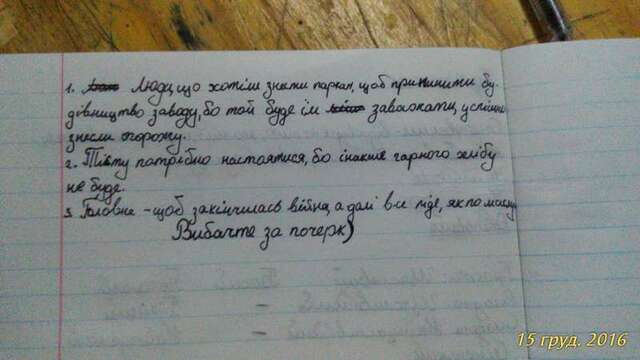 1. Люди, що хотіли знести паркан, щоб припинити бу-
дівництво заводу, бо той буде їм заважати, успішно
знесли огорожу.
2. Тісту потрібно настоятися, бо інакше гарного хлібу
не буде.
3. Головне - щоб закінчилась війна, а далі все піде, як по маслу
Вибачте за почерк)
15 груд. 2016